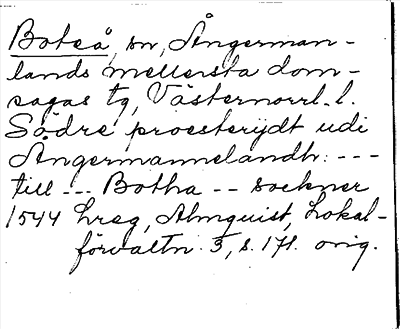 Boteå, sn, Ångerman-
lands mellersta dom-
sagas tg, Västernorrl. l.
Södre prosterijdt udi
Ångermannelandh: ---
till --- Botha -- sockner
1544 Lreg, Almquist, Lokal-
förvaltn. 3, s. 171. orig.